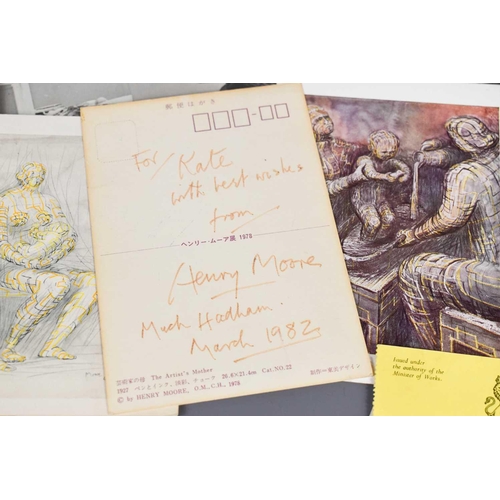 郵便はがき
For Kate
with best wishes
from
ヘンリー・ムーア展 1978
Henry Moore
Much Hadham.
March 1982
芸術家の母 The Artist's Mother
1927 ペンとインク、淡彩、チョーク 28.4×21.4cm Cat.NO.22
制作=東京デザイン
© by HENRY MOORE, O.M., C.H., 1978
Issued under
the authority of the
Minister of Works.